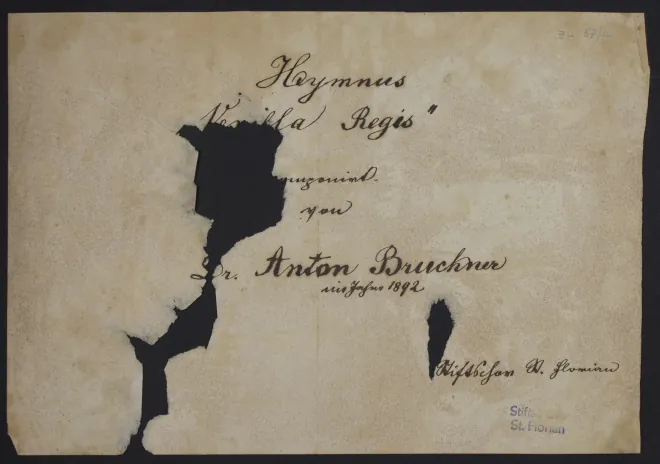 Hymnus
"Vexilla Regis"
componirt
von
Dr. Anton Bruckner
im Jahre 1892
Stiftschor St. Florian
Stifts
St. Florian